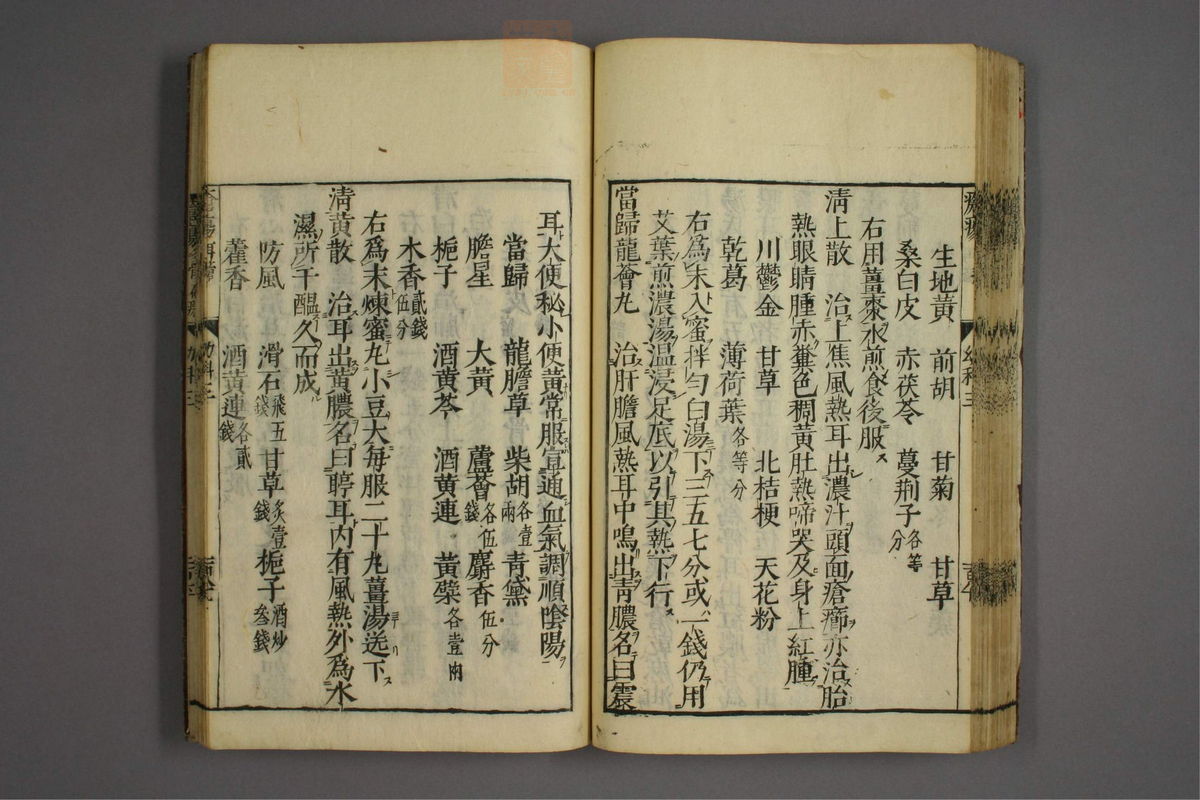 生地黃　前胡　甘菊　甘草
桑白皮　赤茯苓　蔓荆子各等分
右用薑棗水煎食後服
清上散　治上焦風熱耳出濃汁頭面瘡癤亦治胎
熱眼睛腫赤糞色稠黃肚熱啼哭及身上紅腫
川鬱金　甘草　北桔梗　天花粉
乾葛　薄荷葉各等分
右為末入蜜拌勻白湯下三五七分或一錢仍用
艾葉煎濃湯温浸足底以引其熱下行
當歸龍薈丸　治肝膽風熱耳中鳴出靑膿名曰震
耳大便秘小便黃常服宣通血氣調順陰陽
當歸　龍膽草　柴胡各壹兩　青黛
膽星　大黃　蘆薈各伍錢　麝香伍分
梔子　酒黃芩　酒黃連　黃檗各壹兩
木香貳錢伍分
右為末煉蜜丸小豆大每服二十丸薑湯送下
清黃散　治耳出黃膿名曰聤耳内有風熱外為水
濕所干醖久而成
防風　滑石飛五錢　甘草炙壹錢　梔子酒炒叁錢
藿香　酒黃連各貳錢